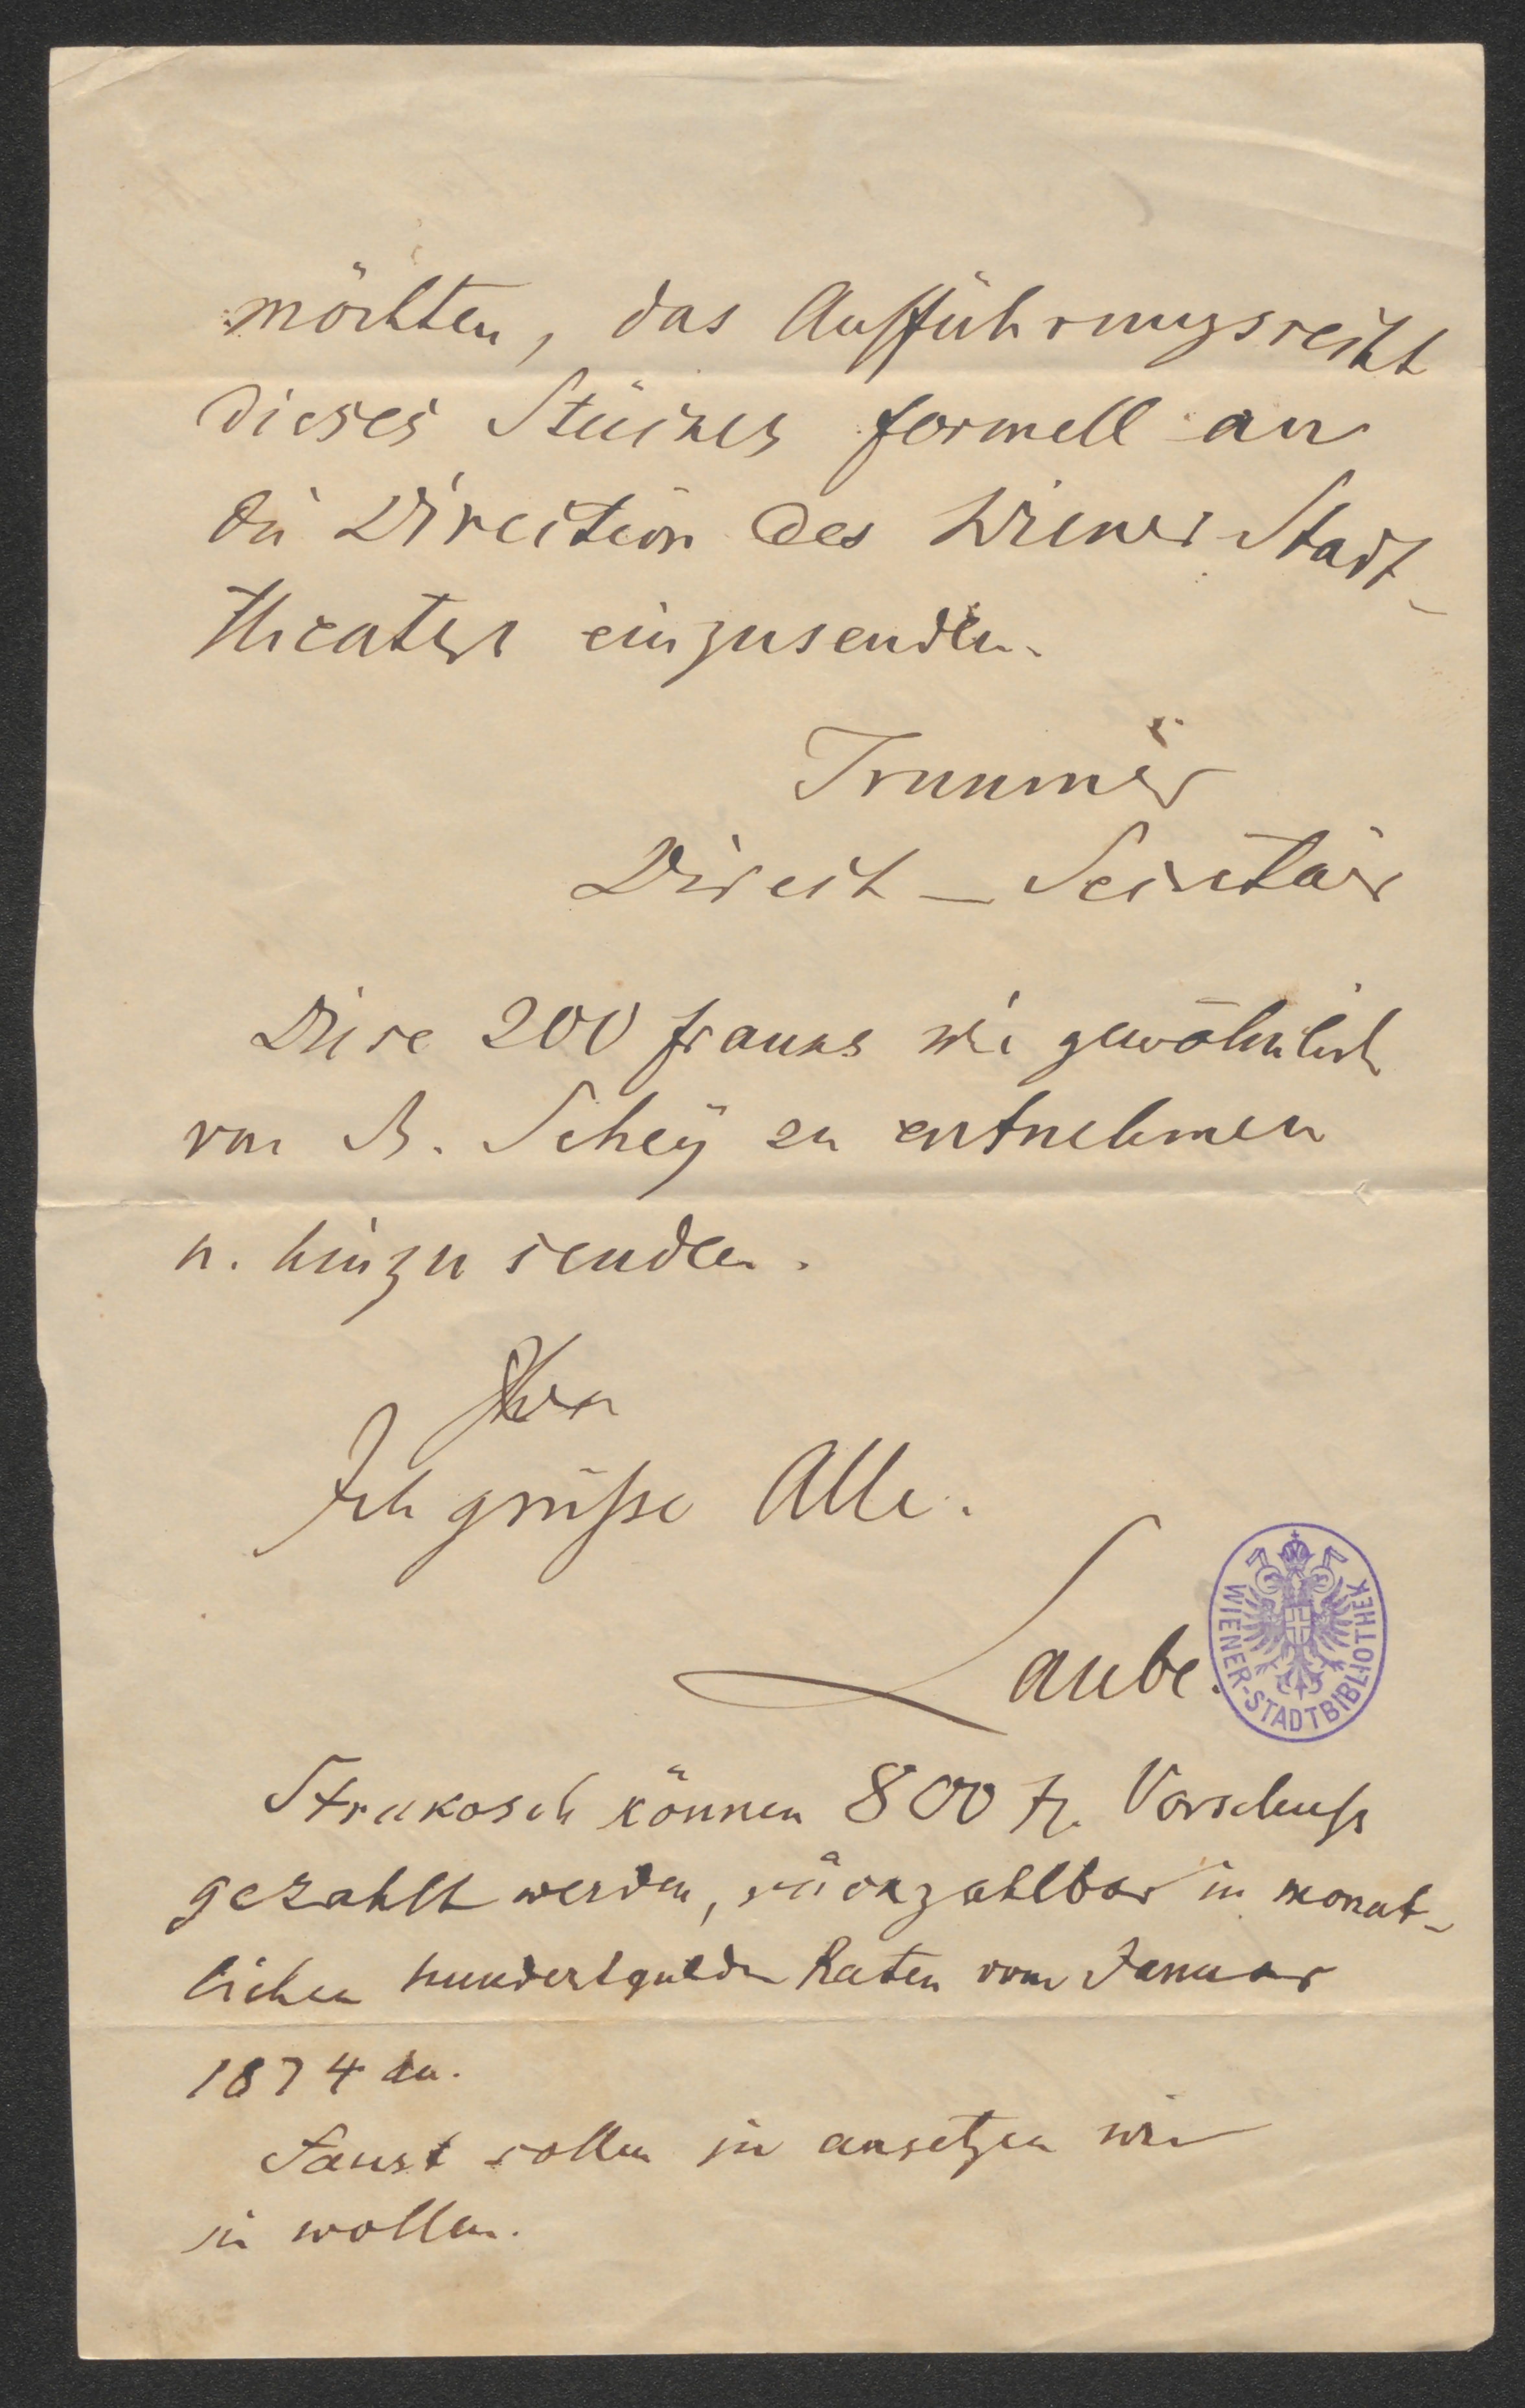 möchten, das Aufführungsrecht
dieses Stückes formell an
die Direction des Wiener Stadt-
theaters einzusenden.
Trummer
Direct – Secretair
Diese 200 franks wie gewöhnlich
von B. Schey zu entnehmen
u. hinzusenden.
Ich grüße Alle.
Laube.
WIENER-STADTBIBLIOTHEK
Strakosch können 800 fl. Vorschuß
gezahlt werden, rückzahlbar in monat-
lichen hundertgulden Raten vom Januar
1874 an.
Faust sollen sie ansetzen wie
sie wollen.